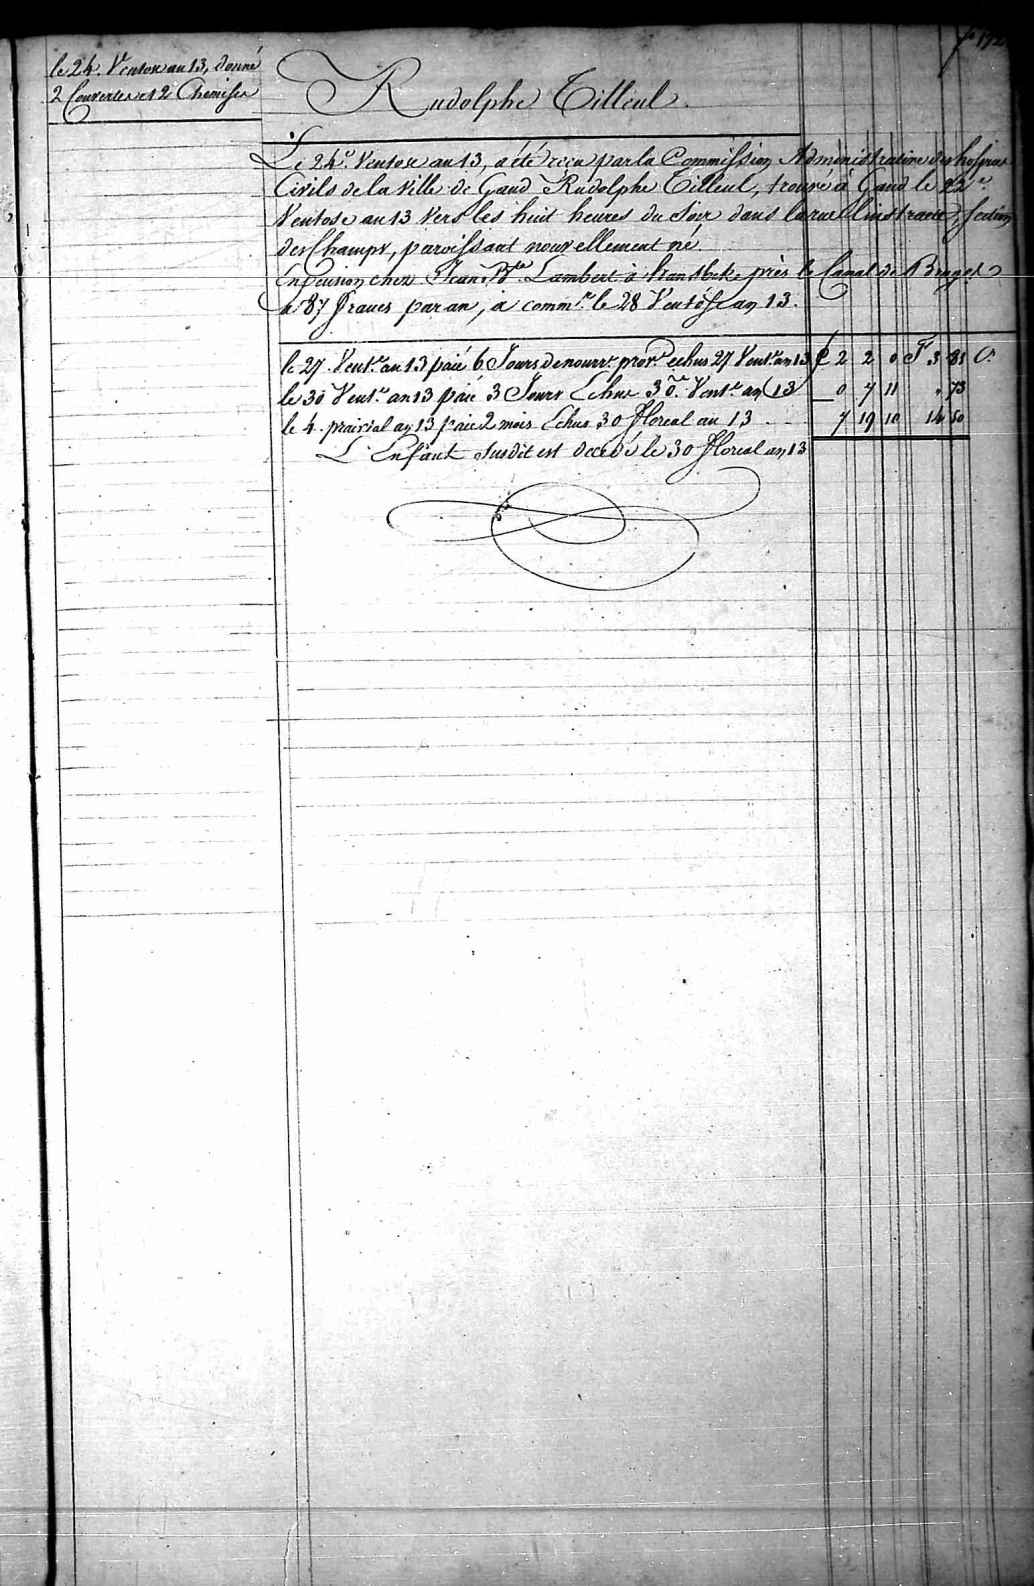 fo 172
le 24. Ventose an 13, donné
2 Couvertes et 2 Chemises
Rudolphe Tilleul.
Le 24e. Ventose an 13, a été reçu par la Commission Administrative des hospices
Civils de la ville de Gand Rudolphe Tilleul, trouvé à Gand le 22e
Ventose an 13 vers les huit heures du soir dans la rue section
des Champs, paroissant nouvellement né.
en Pension chez Jean Bte. Lambert à hansbeke près le Canal de Bruges
à 87 francs par an, a comm.ce le 28 Ventôse an 13.
le 27. Vent.e an 13 paié 6 Jours de nourr.e prov.e echus 27 Vent.e an 13 £ 2 2 0 F 3 81 C.
le 30 Vent.e an 13 paié 3 Jours Echus 30.e Vent.e an 13 0 7 11 " 73
le 4. prairial an 13 paié 2 mois Echus 30 floreal an 13 7 19 10 14 50
L'Enfant susdit est decedé le 30 floreal an 13